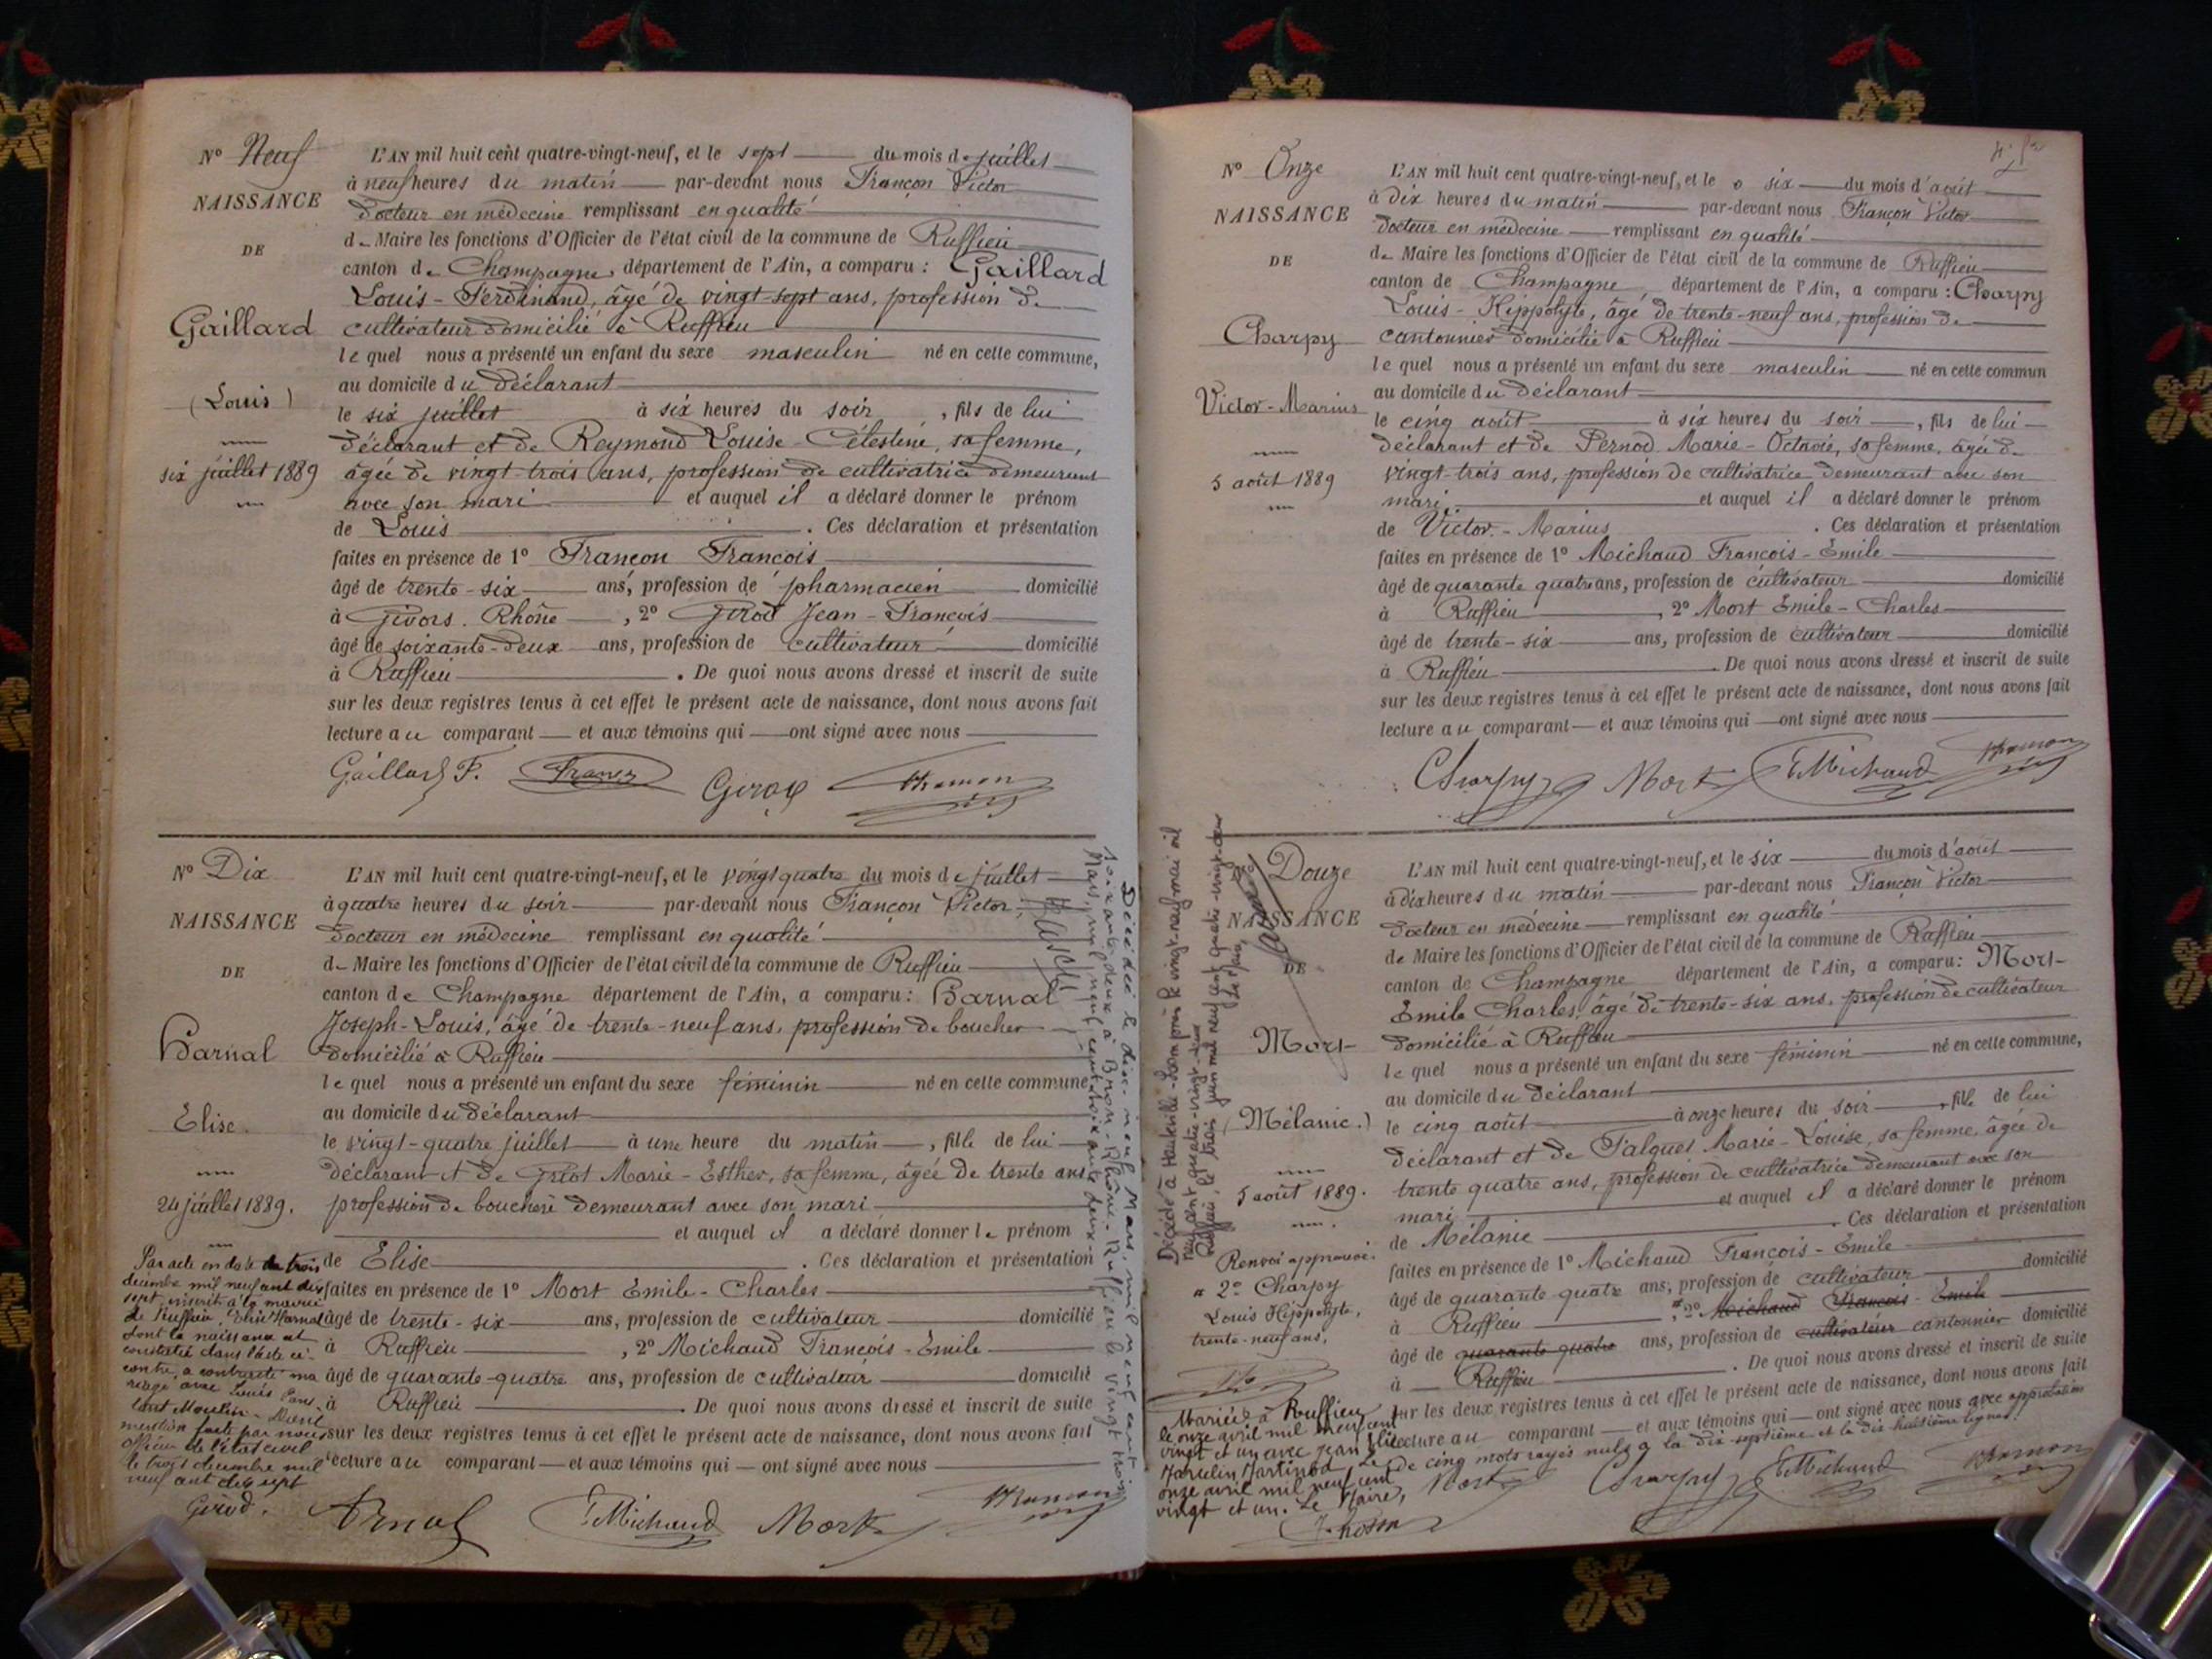 N° Neuf
NAISSANCE
DE
Gaillard
(Louis)
six juillet 1889
L'AN mil huit cent quatre-vingt-neuf, et le sept du mois de juillet
à neuf heures du matin par-devant nous Françon Victor
docteur en médecine remplissant en qualité
de Maire les fonctions d'Officier de l'état civil de la commune de Ruffieu
canton de Champagne, département de l'Ain, a comparu : Gaillard
Louis-Ferdinand, âgé de vingt-sept ans, profession de
cultivateur domicilié à Ruffieu
lequel nous a présenté un enfant du sexe masculin né en cette commune,
au domicile du déclarant
le six juillet à six heures du soir, fils de lui
déclarant et de Reymond Louise-Célestine, sa femme,
âgée de vingt-trois ans, profession de cultivatrice demeurant
avec son mari et auquel il a déclaré donner le prénom
de Louis. Ces déclaration et présentation
faites en présence de 1° Françon François
âgé de trente-six ans, profession de pharmacien domicilié
à Givors. Rhône, 2° Girod Jean-François
âgé de soixante-deux ans, profession de cultivateur domicilié
à Ruffieu. De quoi nous avons dressé et inscrit de suite
sur les deux registres tenus à cet effet le présent acte de naissance, dont nous avons fait
lecture au comparant et aux témoins qui ont signé avec nous
Gaillard F. Girod
N° Dix
NAISSANCE
DE
Harnal
Elise.
24 juillet 1889.
Par acte en date du trois
décembre mil neuf cent dix
sept, inscrit à la mairie
de Ruffieu, Elise Harnal
dont la naissance est
constatée dans l'acte ci-
contre, a contracté ma
riage avec Louis
mention faite par nous
officier de l'état civil
le trois décembre mil
neuf cent dix sept
Girod.
L'AN mil huit cent quatre-vingt-neuf, et le vingt quatre du mois de juillet
à quatre heures du soir par-devant nous Françon Victor,
docteur en médecine remplissant en qualité
de Maire les fonctions d'Officier de l'état civil de la commune de Ruffieu
canton de Champagne département de l'Ain, a comparu : Harnal
Joseph-Louis, âgé de trente-neuf ans, profession de boucher
domicilié à Ruffieu
lequel nous a présenté un enfant du sexe féminin né en cette commune
au domicile du déclarant
le vingt-quatre juillet à une heure du matin, fille de lui
déclarant et de Griot Marie-Esther, sa femme, âgée de trente ans
profession de bouchère demeurant avec son mari
et auquel il a déclaré donner le prénom
de Elise. Ces déclaration et présentation
faites en présence de 1° Mort Emile-Charles
âgé de trente-six ans, profession de cultivateur domicilié
à Ruffieu, 2° Michaud François-Emile
âgé de quarante-quatre ans, profession de cultivateur domicilié
à Ruffieu. De quoi nous avons dressé et inscrit de suite
sur les deux registres tenus à cet effet le présent acte de naissance, dont nous avons fait
lecture au comparant et aux témoins qui ont signé avec nous
Arnal E Michaud Mort
Décédée le dix-neuf Mars mil neuf cent
soixante deux à Bron-Rhône. Ruffieu le vingt trois
Mars mil neuf cent soixante deux
N° Onze
NAISSANCE
DE
Charpy
Victor-Marius
5 août 1889
L'AN mil huit cent quatre-vingt-neuf, et le six du mois d'août
à dix heures du matin par-devant nous Françon Victor
docteur en médecine remplissant en qualité
de Maire les fonctions d'Officier de l'état civil de la commune de Ruffieu
canton de Champagne département de l'Ain, a comparu : Charpy
Louis-Hippolyte, âgé de trente-neuf ans, profession de
cantonnier domicilié à Ruffieu
lequel nous a présenté un enfant du sexe masculin né en cette commun
au domicile du déclarant
le cinq août à six heures du soir, fils de lui
déclarant et de Pernod Marie-Octavie, sa femme, âgée de
vingt-trois ans, profession de cultivatrice demeurant avec son
mari. et auquel il a déclaré donner le prénom
de Victor-Marius. Ces déclaration et présentation
faites en présence de 1° Michaud François-Emile
âgé de quarante quatre ans, profession de cultivateur domicilié
à Ruffieu, 2° Mort Emile-Charles
âgé de trente-six ans, profession de cultivateur domicilié
à Ruffieu. De quoi nous avons dressé et inscrit de suite
sur les deux registres tenus à cet effet le présent acte de naissance, dont nous avons fait
lecture au comparant et aux témoins qui ont signé avec nous
Charpy Mort E Michaud
Douze
NAISSANCE
DE
Mort
(Mélanie.)
5 août 1889.
Renvoi approuvé.
# 2° Charpy
Louis Hippolyte,
trente-neuf ans,
Mariée à Ruffieu
le onze avril mil neuf cent
vingt et un avec Jean
onze avril mil neuf cent
vingt et un. Le Maire,
L'AN mil huit cent quatre-vingt-neuf, et le six du mois d'août
à dix heures du matin par-devant nous Françon Victor
docteur en médecine remplissant en qualité
de Maire les fonctions d'Officier de l'état civil de la commune de Ruffieu
canton de Champagne département de l'Ain, a comparu : Mort
Emile Charles, âgé de trente-six ans, profession de cultivateur
domicilié à Ruffieu
lequel nous a présenté un enfant du sexe féminin né en cette commune,
au domicile du déclarant
le cinq août à onze heures du soir, fille de lui
déclarant et de Falques Marie-Louise, sa femme, âgée de
trente quatre ans, profession de cultivatrice demeurant avec son
mari et auquel il a déclaré donner le prénom
de Mélanie. Ces déclaration et présentation
faites en présence de 1° Michaud François-Emile
âgé de quarante-quatre ans, profession de cultivateur domicilié
à Ruffieu, # 2° Michaud François-Emile
âgé de quarante quatre ans, profession de cultivateur cantonnier domicilié
à Ruffieu. De quoi nous avons dressé et inscrit de suite
sur les deux registres tenus à cet effet le présent acte de naissance, dont nous avons fait
lecture au comparant et aux témoins qui ont signé avec nous avec approbation
de cinq mots rayés nuls à la dix septième et la dix huitième lignes.
Mort Charpy E Michaud
Décédée à Hauteville-Lompnes le vingt-neuf mai mil
neuf cent quatre-vingt-deux
Ruffieu, le trois juin mil neuf cent quatre-vingt-deux